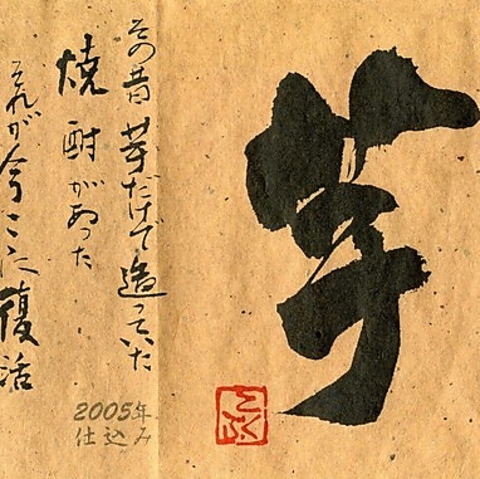 芋
その昔 芋だけで造っていた
焼酎があった
それが今ここに復活
2005年
仕込み